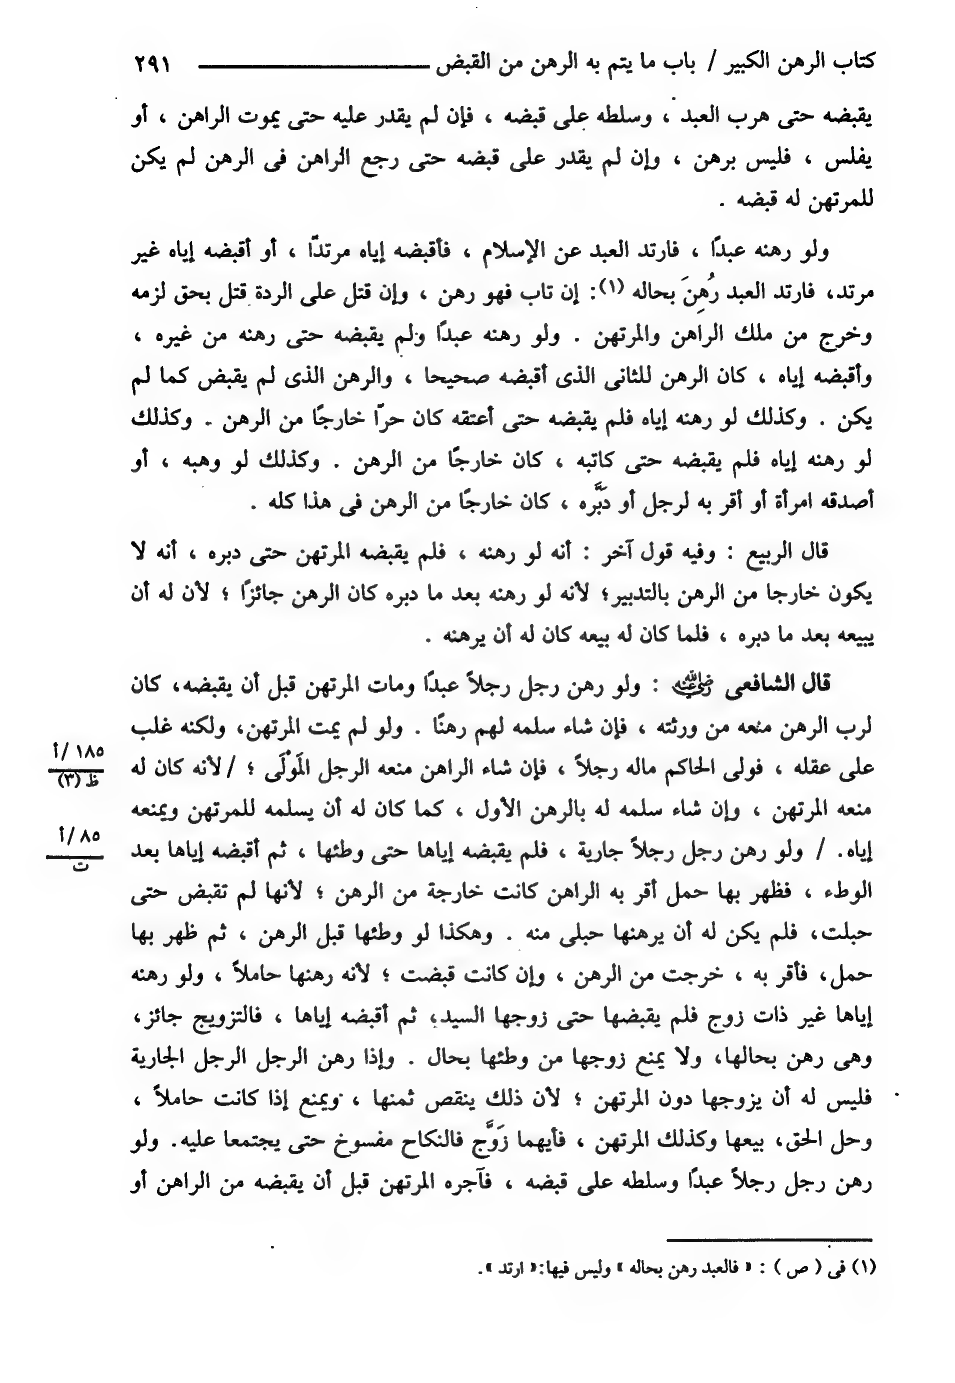 كتاب الرهن الكبير / باب ما يتم به الرهن من القبض ــــــــــــــــــ ٢٩١
يقبضه حتى هرب العبد ، وسلطه على قبضه ، فإن لم يقدر عليه حتى يموت الراهن ، أو
يفلس ، فليس برهن ، وإن لم يقدر على قبضه حتى رجع الراهن فى الرهن لم يكن
للمرتهن له قبضه .
ولو رهنه عبدًا ، فارتد العبد عن الإسلام ، فأقبضه إياه مرتدًّا ، أو أقبضه إياه غير
مرتد، فارتد العبد رُهِنَ بحاله (١): إن تاب فهو رهن ، وإن قتل على الردة قتل بحق لزمه
وخرج من ملك الراهن والمرتهن . ولو رهنه عبدًا ولم يقبضه حتى رهنه من غيره ،
وأقبضه إياه ، كان الرهن للثانى الذى أقبضه صحيحا ، والرهن الذى لم يقبض كما لم
يكن . وكذلك لو رهنه إياه فلم يقبضه حتى أعتقه كان حرًّا خارجًا من الرهن . وكذلك
لو رهنه إياه فلم يقبضه حتى كاتبه ، كان خارجًا من الرهن . وكذلك لو وهبه ، أو
أصدقه امرأة أو أقر به لرجل أو دَبَّره ، كان خارجًا من الرهن فى هذا كله .
قال الربيع : وفيه قول آخر : أنه لو رهنه ، فلم يقبضه المرتهن حتى دبره ، أنه لا
يكون خارجا من الرهن بالتدبير؛ لأنه لو رهنه بعد ما دبره كان الرهن جائزًا ؛ لأن له أن
يبيعه بعد ما دبره ، فلما كان له بيعه كان له أن يرهنه .
قال الشافعى رضي الله عنه : ولو رهن رجل رجلاً عبدًا ومات المرتهن قبل أن يقبضه، كان
لرب الرهن منعه من ورثته ، فإن شاء سلمه لهم رهنًا . ولو لم يمت المرتهن، ولكنه غلب
على عقله ، فولى الحاكم ماله رجلاً ، فإن شاء الراهن منعه الرجل المَوْلَى ؛ / لأنه كان له
١٨٥/أ
ظ (٣)
منعه المرتهن ، وإن شاء سلمه له بالرهن الأول ، كما كان له أن يسلمه للمرتهن ويمنعه
إياه. / ولو رهن رجل رجلاً جارية ، فلم يقبضه إياها حتى وطئها ، ثم أقبضه إياها بعد
٨٥/أ
ت
الوطء ، فظهر بها حمل أقر به الراهن كانت خارجة من الرهن ؛ لأنها لم تقبض حتى
حبلت، فلم يكن له أن يرهنها حبلى منه . وهكذا لو وطئها قبل الرهن ، ثم ظهر بها
حمل، فأقر به ، خرجت من الرهن ، وإن كانت قبضت ؛ لأنه رهنها حاملاً ، ولو رهنه
إياها غير ذات زوج فلم يقبضها حتى زوجها السيد، ثم أقبضه إياها ، فالتزويج جائز،
وهى رهن بحالها، ولا يمنع زوجها من وطئها بحال . وإذا رهن الرجل الرجل الجارية
فليس له أن يزوجها دون المرتهن ؛ لأن ذلك ينقص ثمنها ، ويمنع إذا كانت حاملاً ،
وحل الحق، بيعها وكذلك المرتهن ، فأيهما زَوَّج فالنكاح مفسوخ حتى يجتمعا عليه. ولو
رهن رجل رجلاً عبدًا وسلطه على قبضه ، فآجره المرتهن قبل أن يقبضه من الراهن أو
(١) فى ( ص ) : « فالعبد رهن بحاله » وليس فيها: « ارتد ».